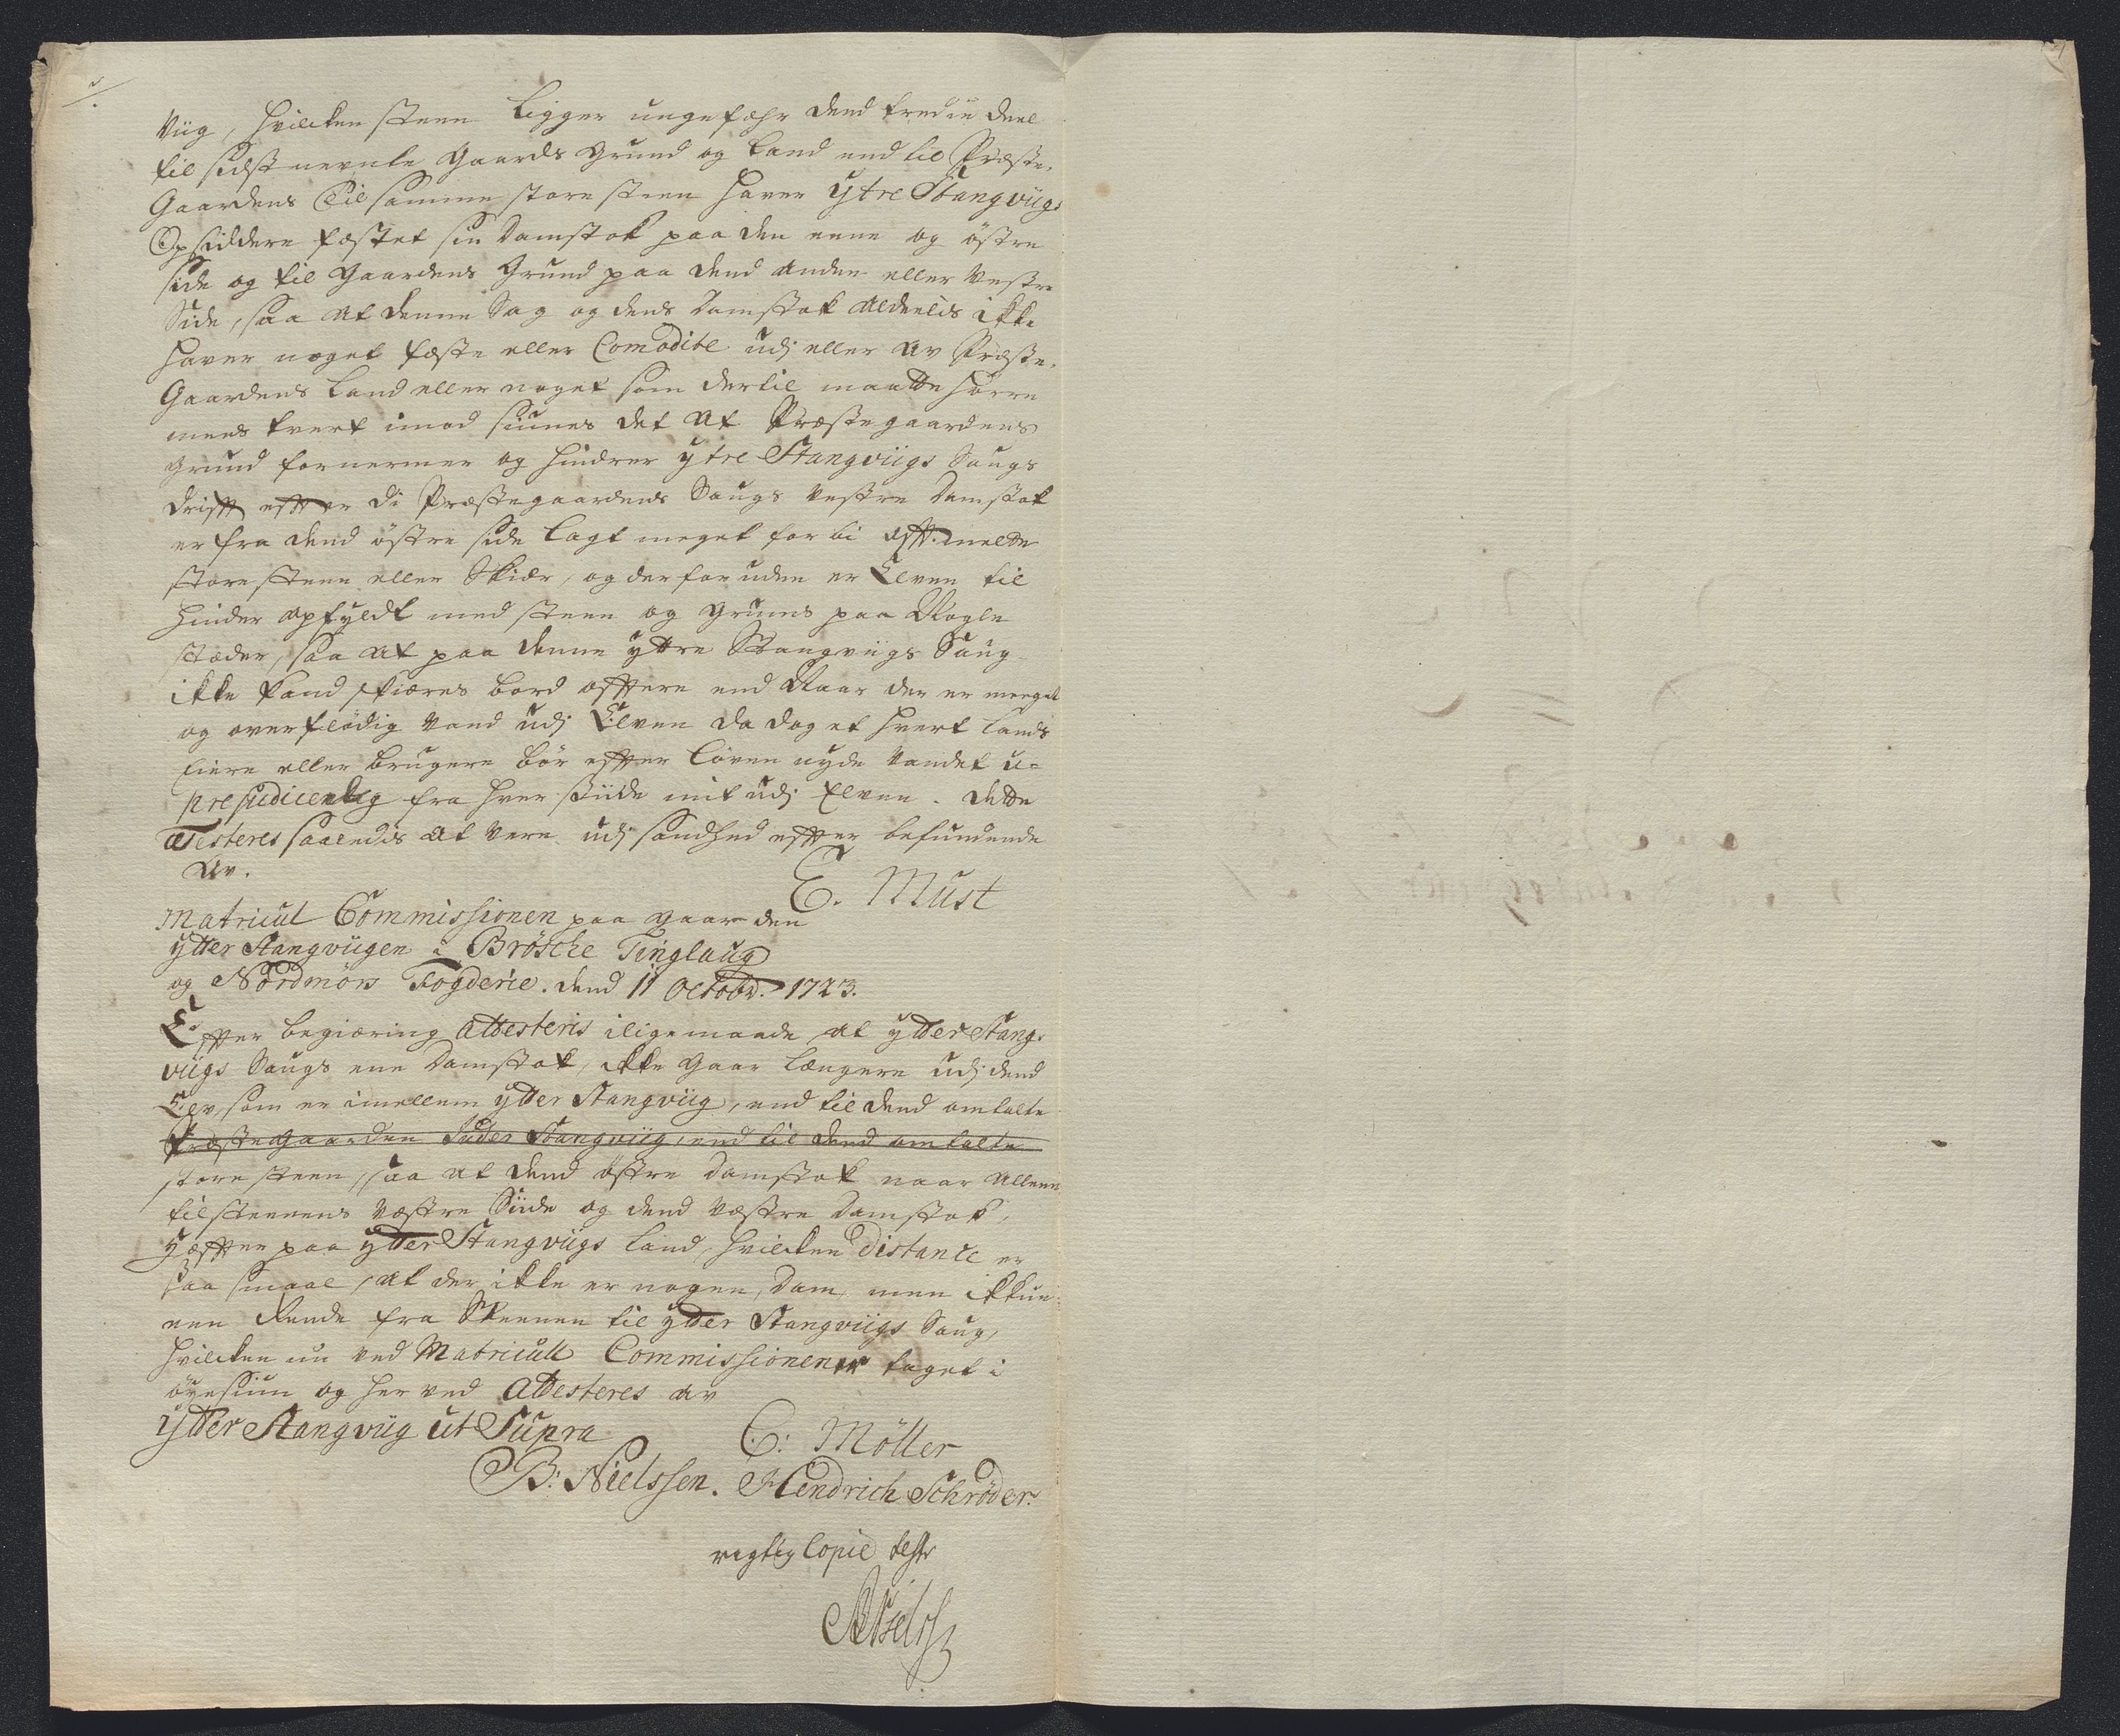 Viig, hvilcken steen Ligger ungefæhr dend tredie deel
til sidstnevnte Gaards grund og Land end til Præste-
Gaardens Til samme store steen haver ÿtre Stangviigs
Opsiddere fæstet sin Damstok paa den eene og östre
side og til Gaardens Grund paa dend anden eller Vestre
Side, saa at denne Sag og dens Damstok aldeelis ikke
haver noget fæste eller Comodite udj eller av Præste-
Gaardens Land eller noget som dertil maatte hörre
mens tvert imod siunes det at Præstegaardens
grund fornermer og hindrer ÿtre Stangviigs Saugs
drifft effter di Præstegaardens Saugs Vestre Damstok
er fra dend östre side lagt meget for bi offt.meldte
store steen eller Skiær, og der foruden er Elven til
hinder opfyldt med steen og gruus paa Nogle
stæder, saa at paa denne ÿttre Stangviigs Saug
ikke kand skiæres bord offtere end Naar der er meeget
og overflödig Vand udj Elven da dog et hvert Lands
Eiere eller brugere bör effter Loven nyde Vandet u-
prejudicerlig fra hver siide mit udj Elven. dette
atesteres saaledis at Vere udj sandhed effter befundende
av.
E. Must
Matricul Commissionen paa gaarden
ÿtter Stangviigen i Brösche Tinglaug
og Nordmörs Fogderie. dend 11 Octobr. 1723.
Effter begiæring attesteris iligemaade at ÿtter Stang-
viigs Saugs eene Damstok, ikke gaar længere udj dend
Elv som er imellem ÿtter Stangviig, end til dend omtalte
Præstegaarden Inder Stangviig, end til dend omtalte
store steen, saa at dend östre damstok naar alleene
til steenens Væstre Siide og dend Væstre Damstok,
hæffter paa ÿtter Stangviigs Land, hvilcken distance er
saa smaal, at der ikke er nogen Dam men ikkun
een Rende fra Steenen til ÿtter Stangviigs Saug,
hvilcken nu ved Matricull Commissionen er taget i
öyesiun og her ved attesteres av
ÿtter Stangviig ut Supra
C: Möller
B: Nielssen. Hendrich Schröder.
rigtig Copie teste
BNielss